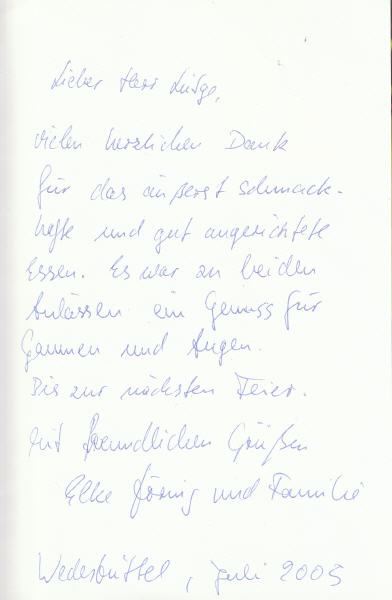 Lieber Herr Lütge,
vielen herzlichen Dank
für das äußerst schmack-
hafte und gut angerichtete
Essen. Es war zu beiden
Anlässen ein Genuss für
Gaumen und Augen.
Bis zur nächsten Feier.
Mit freundlichen Grüßen
Elke und Familie
Wedesbüttel, Juli 2005